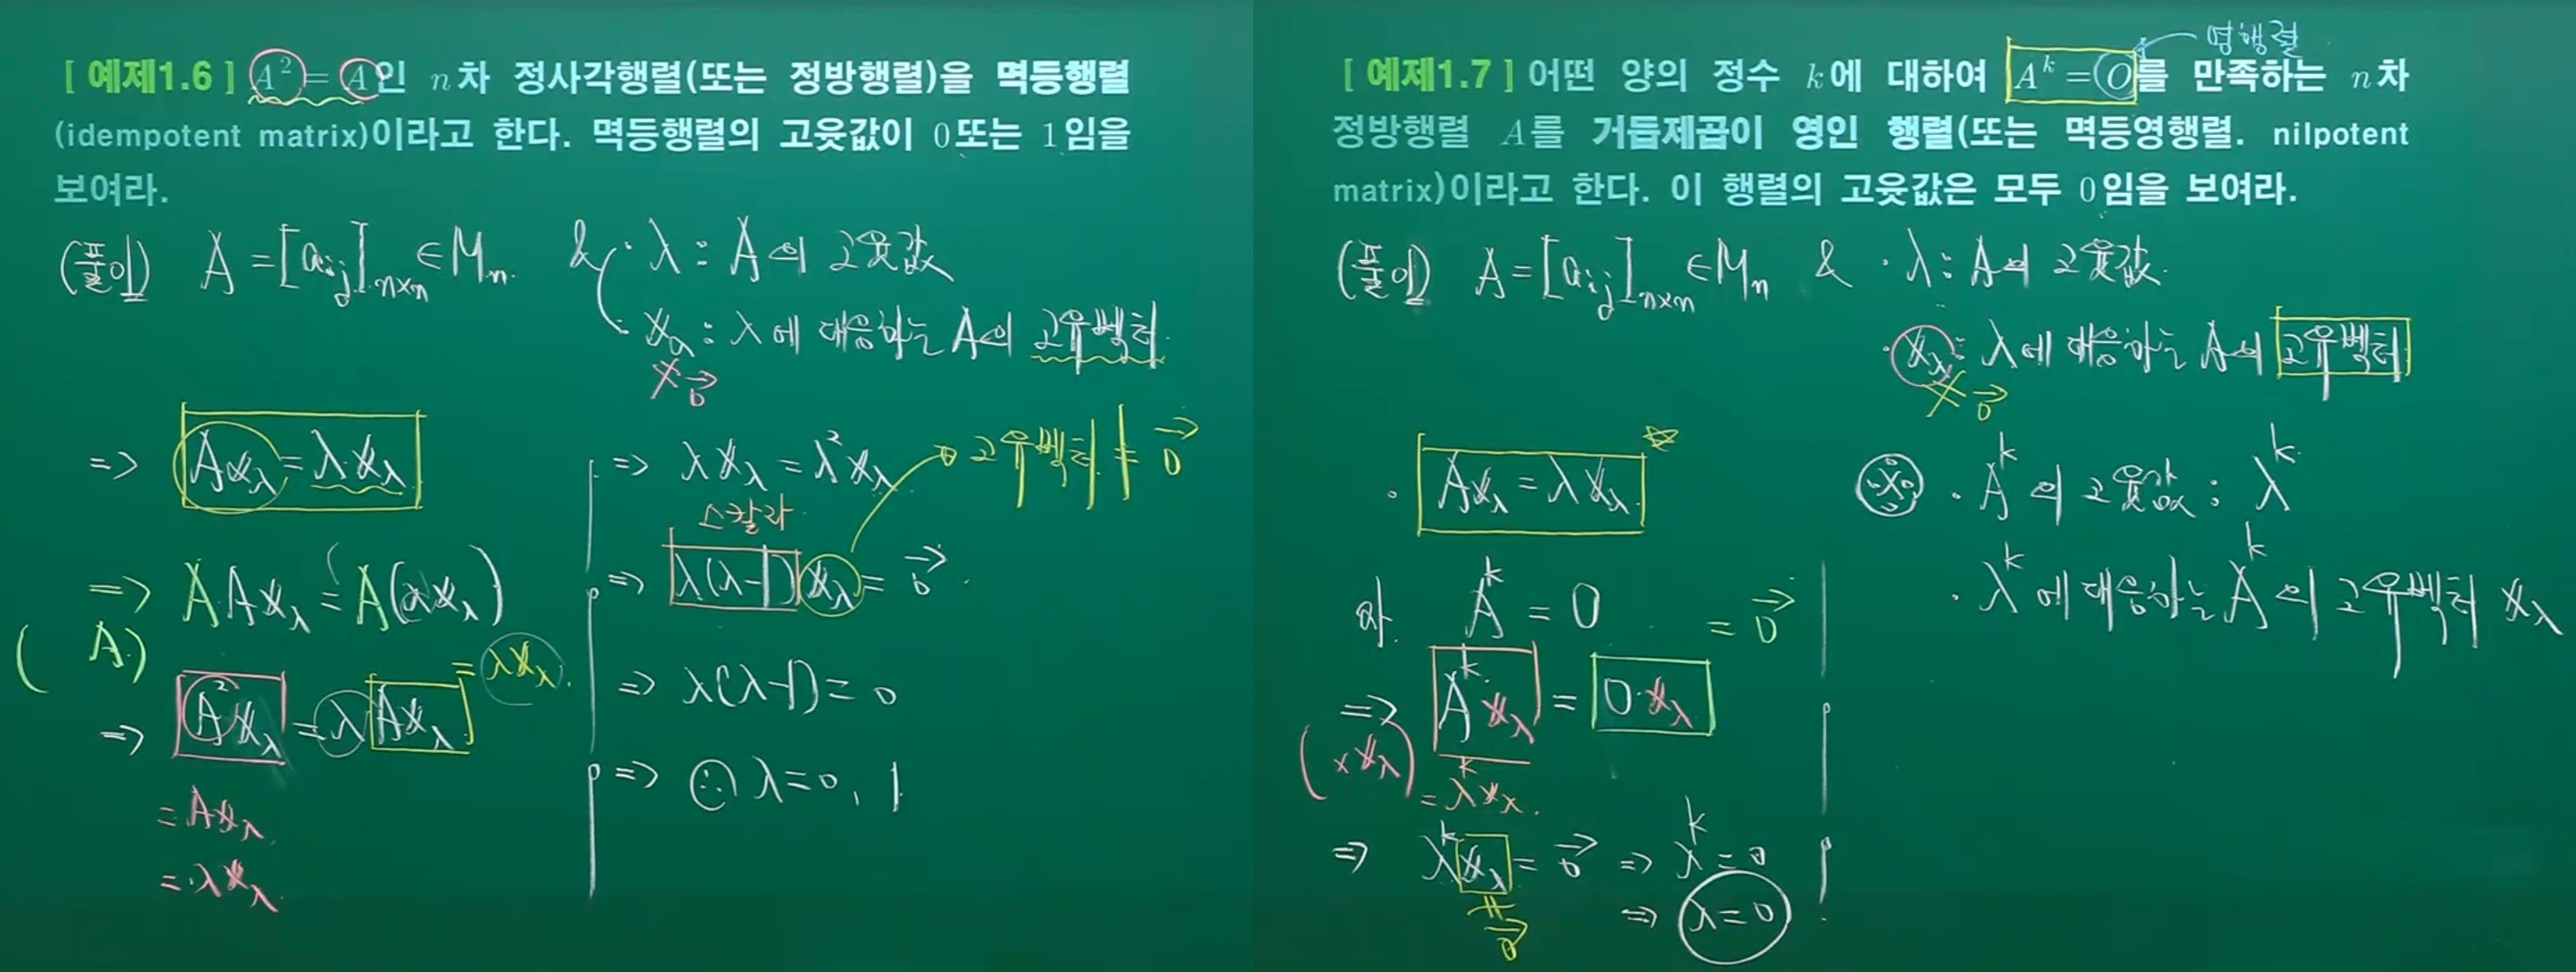 [ 예제1.6 ] A² = A인 n차 정사각행렬(또는 정방행렬)을 멱등행렬
(idempotent matrix)이라고 한다. 멱등행렬의 고윳값이 0또는 1임을
보여라.
(풀이) A = [aᵢⱼ]ₙₓₙ ∈ Mₙ & · λ : A의 고윳값
· x_λ : λ에 대응하는 A의 고유벡터.
≠ 0⃗
⇒ Ax_λ = λx_λ
⇒ AAx_λ = A(λx_λ)
( A·)
⇒ A²x_λ = λAx_λ = λx_λ
= Ax_λ
= λx_λ
⇒ λx_λ = λ²x_λ
고유벡터 ≠ 0⃗
스칼라
⇒ λ(λ-1)x_λ = 0⃗.
⇒ λ(λ-1) = 0
⇒ ∴ λ = 0, 1
영행렬
[ 예제1.7 ] 어떤 양의 정수 k에 대하여 Aᵏ = O를 만족하는 n차
정방행렬 A를 거듭제곱이 영인 행렬(또는 멱등영행렬. nilpotent
matrix)이라고 한다. 이 행렬의 고윳값은 모두 0임을 보여라.
(풀이) A = [aᵢⱼ]ₙₓₙ ∈ Mₙ & · λ : A의 고윳값.
· x_λ : λ에 대응하는 A의 고유벡터
≠ 0⃗
· Ax_λ = λx_λ
Aᵏ = O
⇒ Aᵏx_λ = O·x_λ = 0⃗
(×x_λ)
= λᵏx_λ.
⇒ λᵏx_λ = 0⃗ ⇒ λᵏ = 0
≠ 0⃗
⇒ λ = 0
※ · Aᵏ의 고윳값 : λᵏ
· λᵏ에 대응하는 Aᵏ의 고유벡터 x_λ